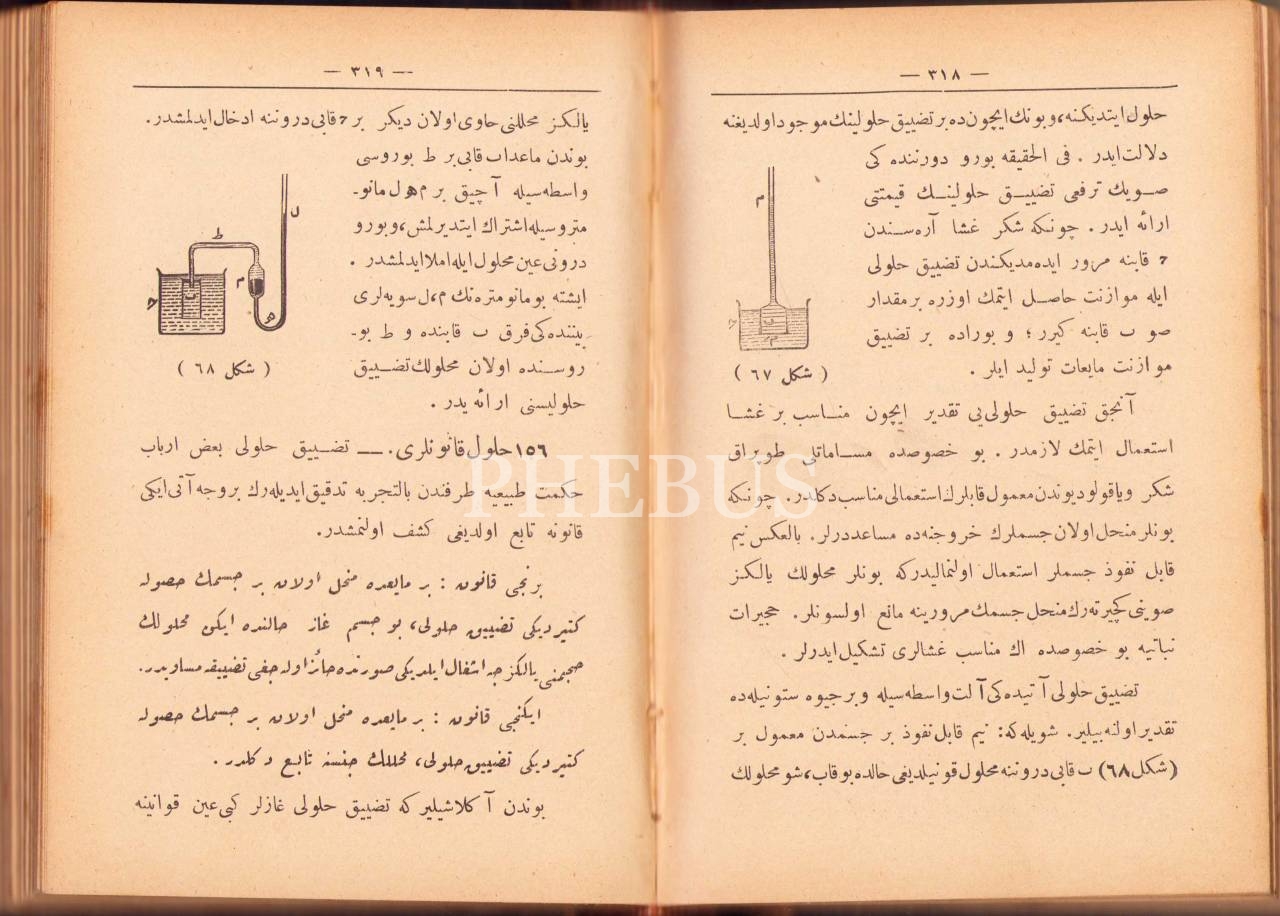 — ٣١٨ —
حلول ايتديكنه، وبونك ايچون ده بر تضييق حلولينك موجود اولديغنه
دلالت ايدر . فى الحقيقه بورو دورننده كى
صويك ترفعى تضييق حلولينك قيمتنى
ارائه ايدر . چونكه شكر غشا آره سندن
ح قابنه مرور ايده مديكندن تضييق حلولى
ايله موازنت حاصل ايتمك اوزره بر مقدار
صو ب قابنه كيرر ؛ و بوراده بر تضييق
موازنت مايعات توليد ايلر .
م
ح
ب
م
( شكل ٦٧ )
آنجق تضييق حلولى يى تقدير ايچون مناسب بر غشا
استعمال ايتمك لازمدر . بو خصوصده مساماتلى طوپراق
شكر وياقولوديوندن معمول قابلرك استعمالى مناسب دكلدر. چونكه
بونلر منحل اولان جسملرك خروجنه ده مساعددرلر. بالعكس نيم
قابل نفوذ جسملر استعمال اولنماليدركه بونلر محلولك يالكز
صوينى كچيرته رك منحل جسمك مرورينه مانع اولسونلر. حجيرات
نباتيه بو خصوصده اك مناسب غشالرى تشكيل ايدرلر .
تضييق حلولى آتيده كى آلت واسطه سيله وبرجيوه ستونيله ده
تقدير اولنه بيلير. شويله كه: نيم قابل نفوذ بر جسمدن معمول بر
(شكل ٦٨) ب قابى دروننه محلول قونيلديغى حالده بو قاب، شو محلولك
— ٣١٩ —
يالكز محللنى حاوى اولان ديكر بر ح قابى دروننه ادخال ايدلمشدر.
بوندن ماعدا ب قابى بر ط بوروسى
واسطه سيله آچيق بر م ه ل مانو-
مترو سيله اشتراك ايتديرلمش، وبورو
درونى عين محلول ايله املا ايدلمشدر .
ايشته بو مانومتره نك م، ل سويه لرى
بيننده كى فرق ب قابنده و ط بو-
روسنده اولان محلولك تضييق
حلوليسنى ارائه يدر .
ل
ط
م
ب
ح
ه
( شكل ٦٨ )
١٥٦ حلول قانونلرى. — تضييق حلولى بعض ارباب
حكمت طبيعيه طرفندن بالتجربه تدقيق ايديله رك بروجه آتى ايكى
قانونه تابع اولديغى كشف اولنمشدر.
برنجى قانون : بر مايعده منحل اولان بر جسمك حصوله
كتيرديكى تضييق حلولى، بو جسم غاز حالنده ايكن محلولك
حجمنى يالكزجه اشغال ايلديكى صورتده حائز اوله جغى تضييقه مساويدر.
ايكنجى قانون : بر مايعده منحل اولان بر جسمك حصوله
كتيرديكى تضييق حلولى، محللك جنسنه تابع دكلدر.
بوندن آكلاشيلير كه تضييق حلولى غازلر كبى عين قوانينه
PHEBUS